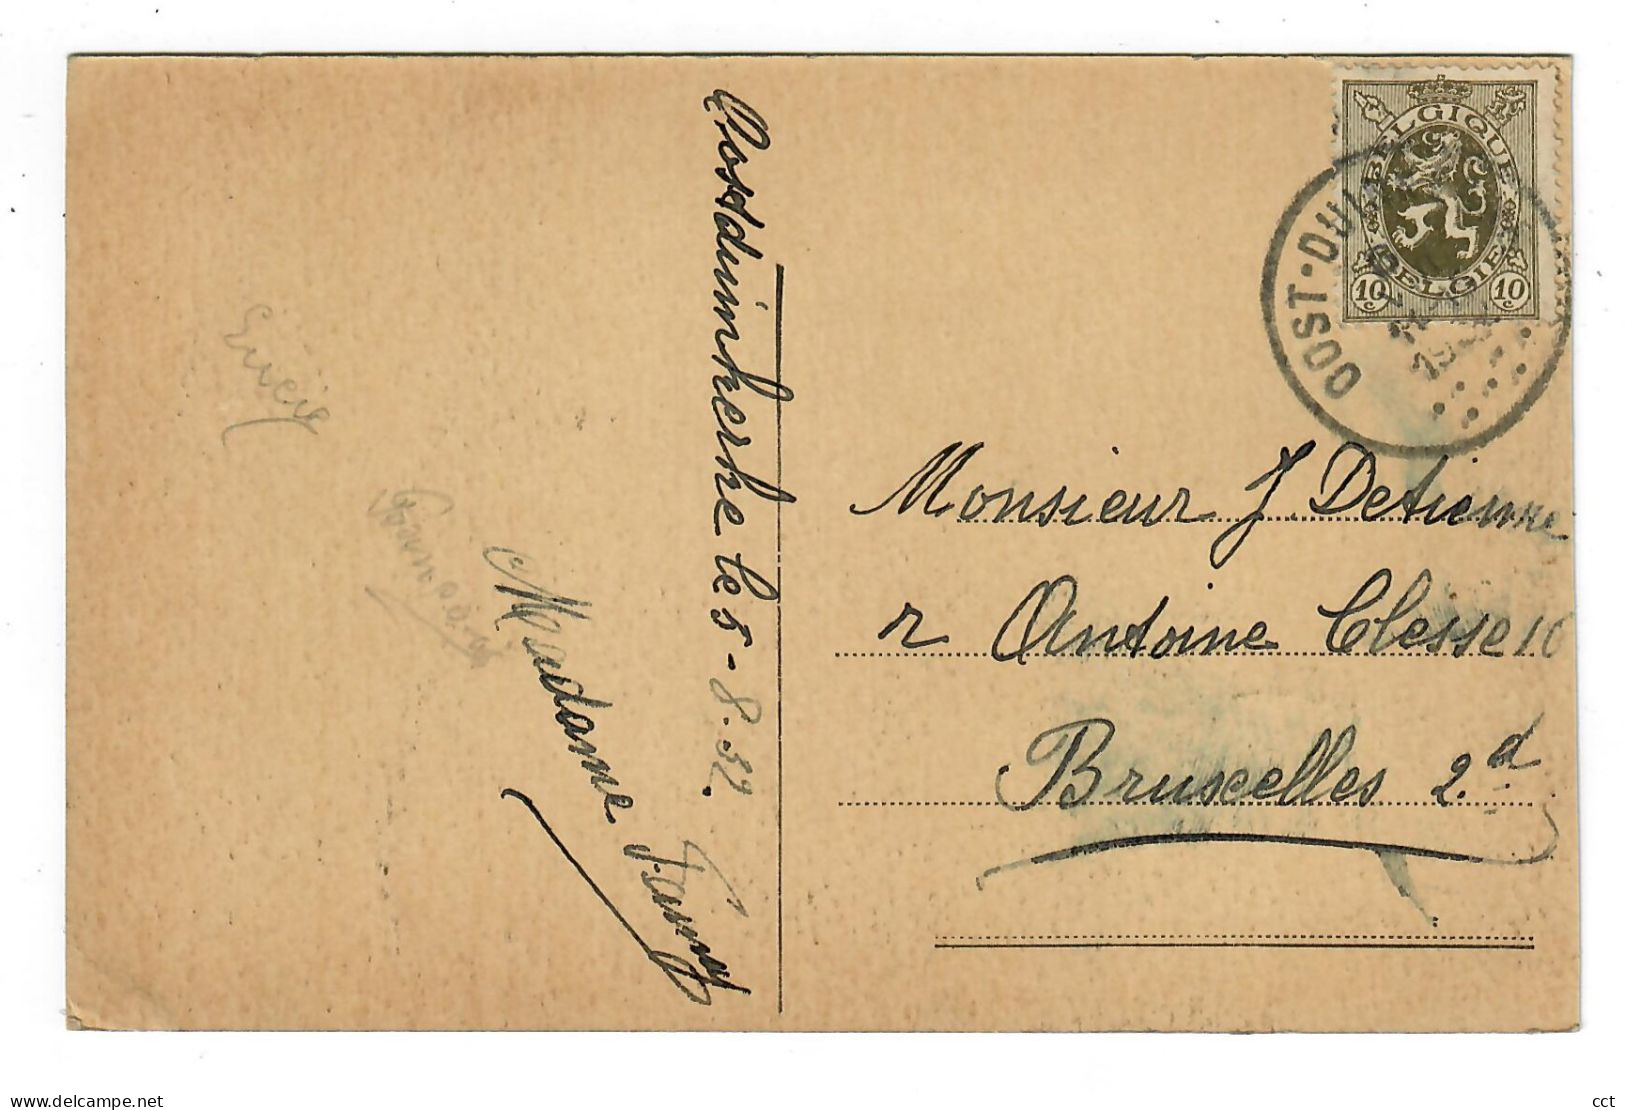 Oostduinkerke le 5-8.32.
Madame Fanny
BELGIQUE
BELGIE
10 c
10 c
OOST-DUI
Monsieur J. Detienne
r Antoine Clesse 10
Bruxelles 2.d
www.delcampe.net
cct